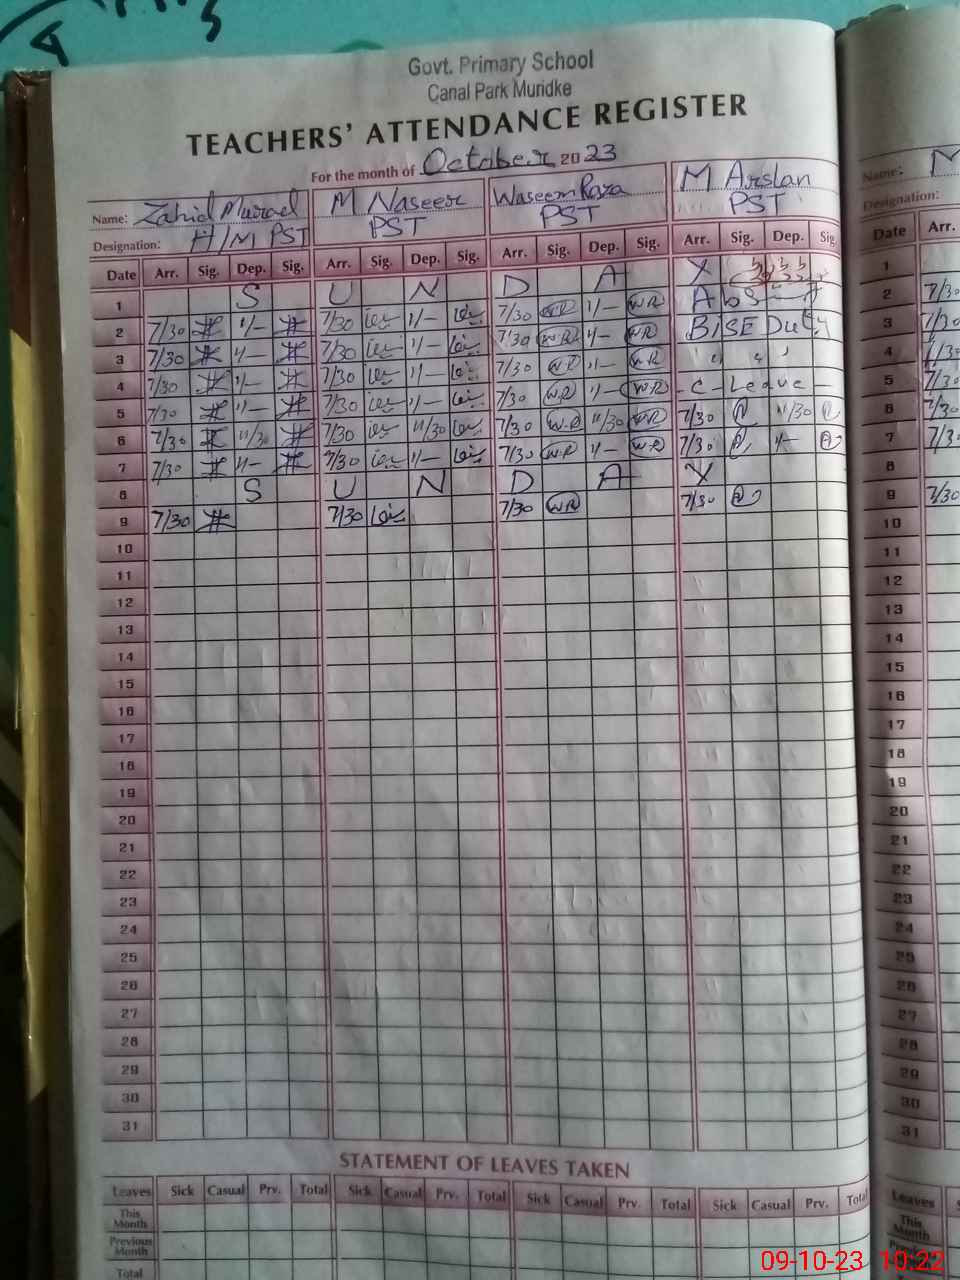 Govt. Primary School
Canal Park Muridke
TEACHERS' ATTENDANCE REGISTER
For the month of October 2023
Name: Zahid Murad M Naseer Waseem Raza M Arslan
Designation: H/M PST PST PST PST
Date Arr. Sig. Dep. Sig. Arr. Sig. Dep. Sig. Arr. Sig. Dep. Sig. Arr. Sig. Dep. Sig.
1 S U N D A Y
2 7/30 1/- 7/30 1/- 7/30 WR 1/- WR Absent
3 7/30 1/- 7/30 1/- 7/30 WR 1/- WR BISE Duty
4 7/30 1/- 7/30 1/- 7/30 WR 1/- WR " " "
5 7/30 1/- 7/30 1/- 7/30 WR 1/- WR - C - Leave -
6 7/30 11/30 7/30 11/30 7/30 WR 11/30 WR 7/30 11/30
7 7/30 1/- 7/30 1/- 7/30 WR 1/- WR 7/30 1/-
8 S U N D A Y
9 7/30 7/30 7/30 WR 7/30
10
11
12
13
14
15
16
17
18
19
20
21
22
23
24
25
26
27
28
29
30
31
STATEMENT OF LEAVES TAKEN
Leaves Sick Casual Prv. Total Sick Casual Prv. Total Sick Casual Prv. Total Sick Casual Prv. Total
This Month
Previous Month
Total
Name: M
Designation:
Date Arr.
1
2 7/30
3 7/30
4 7/30
5 7/30
6 7/30
7 7/30
8
9 7/30
10
11
12
13
14
15
16
17
18
19
20
21
22
23
24
25
26
27
28
29
30
31
Leaves
This Month
09-10-23 10:22